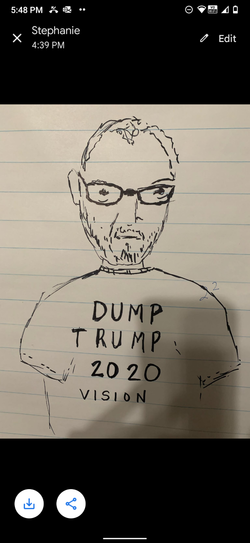 5:48 PM
Stephanie
4:39 PM
Edit
DUMP
TRUMP
2020
VISION